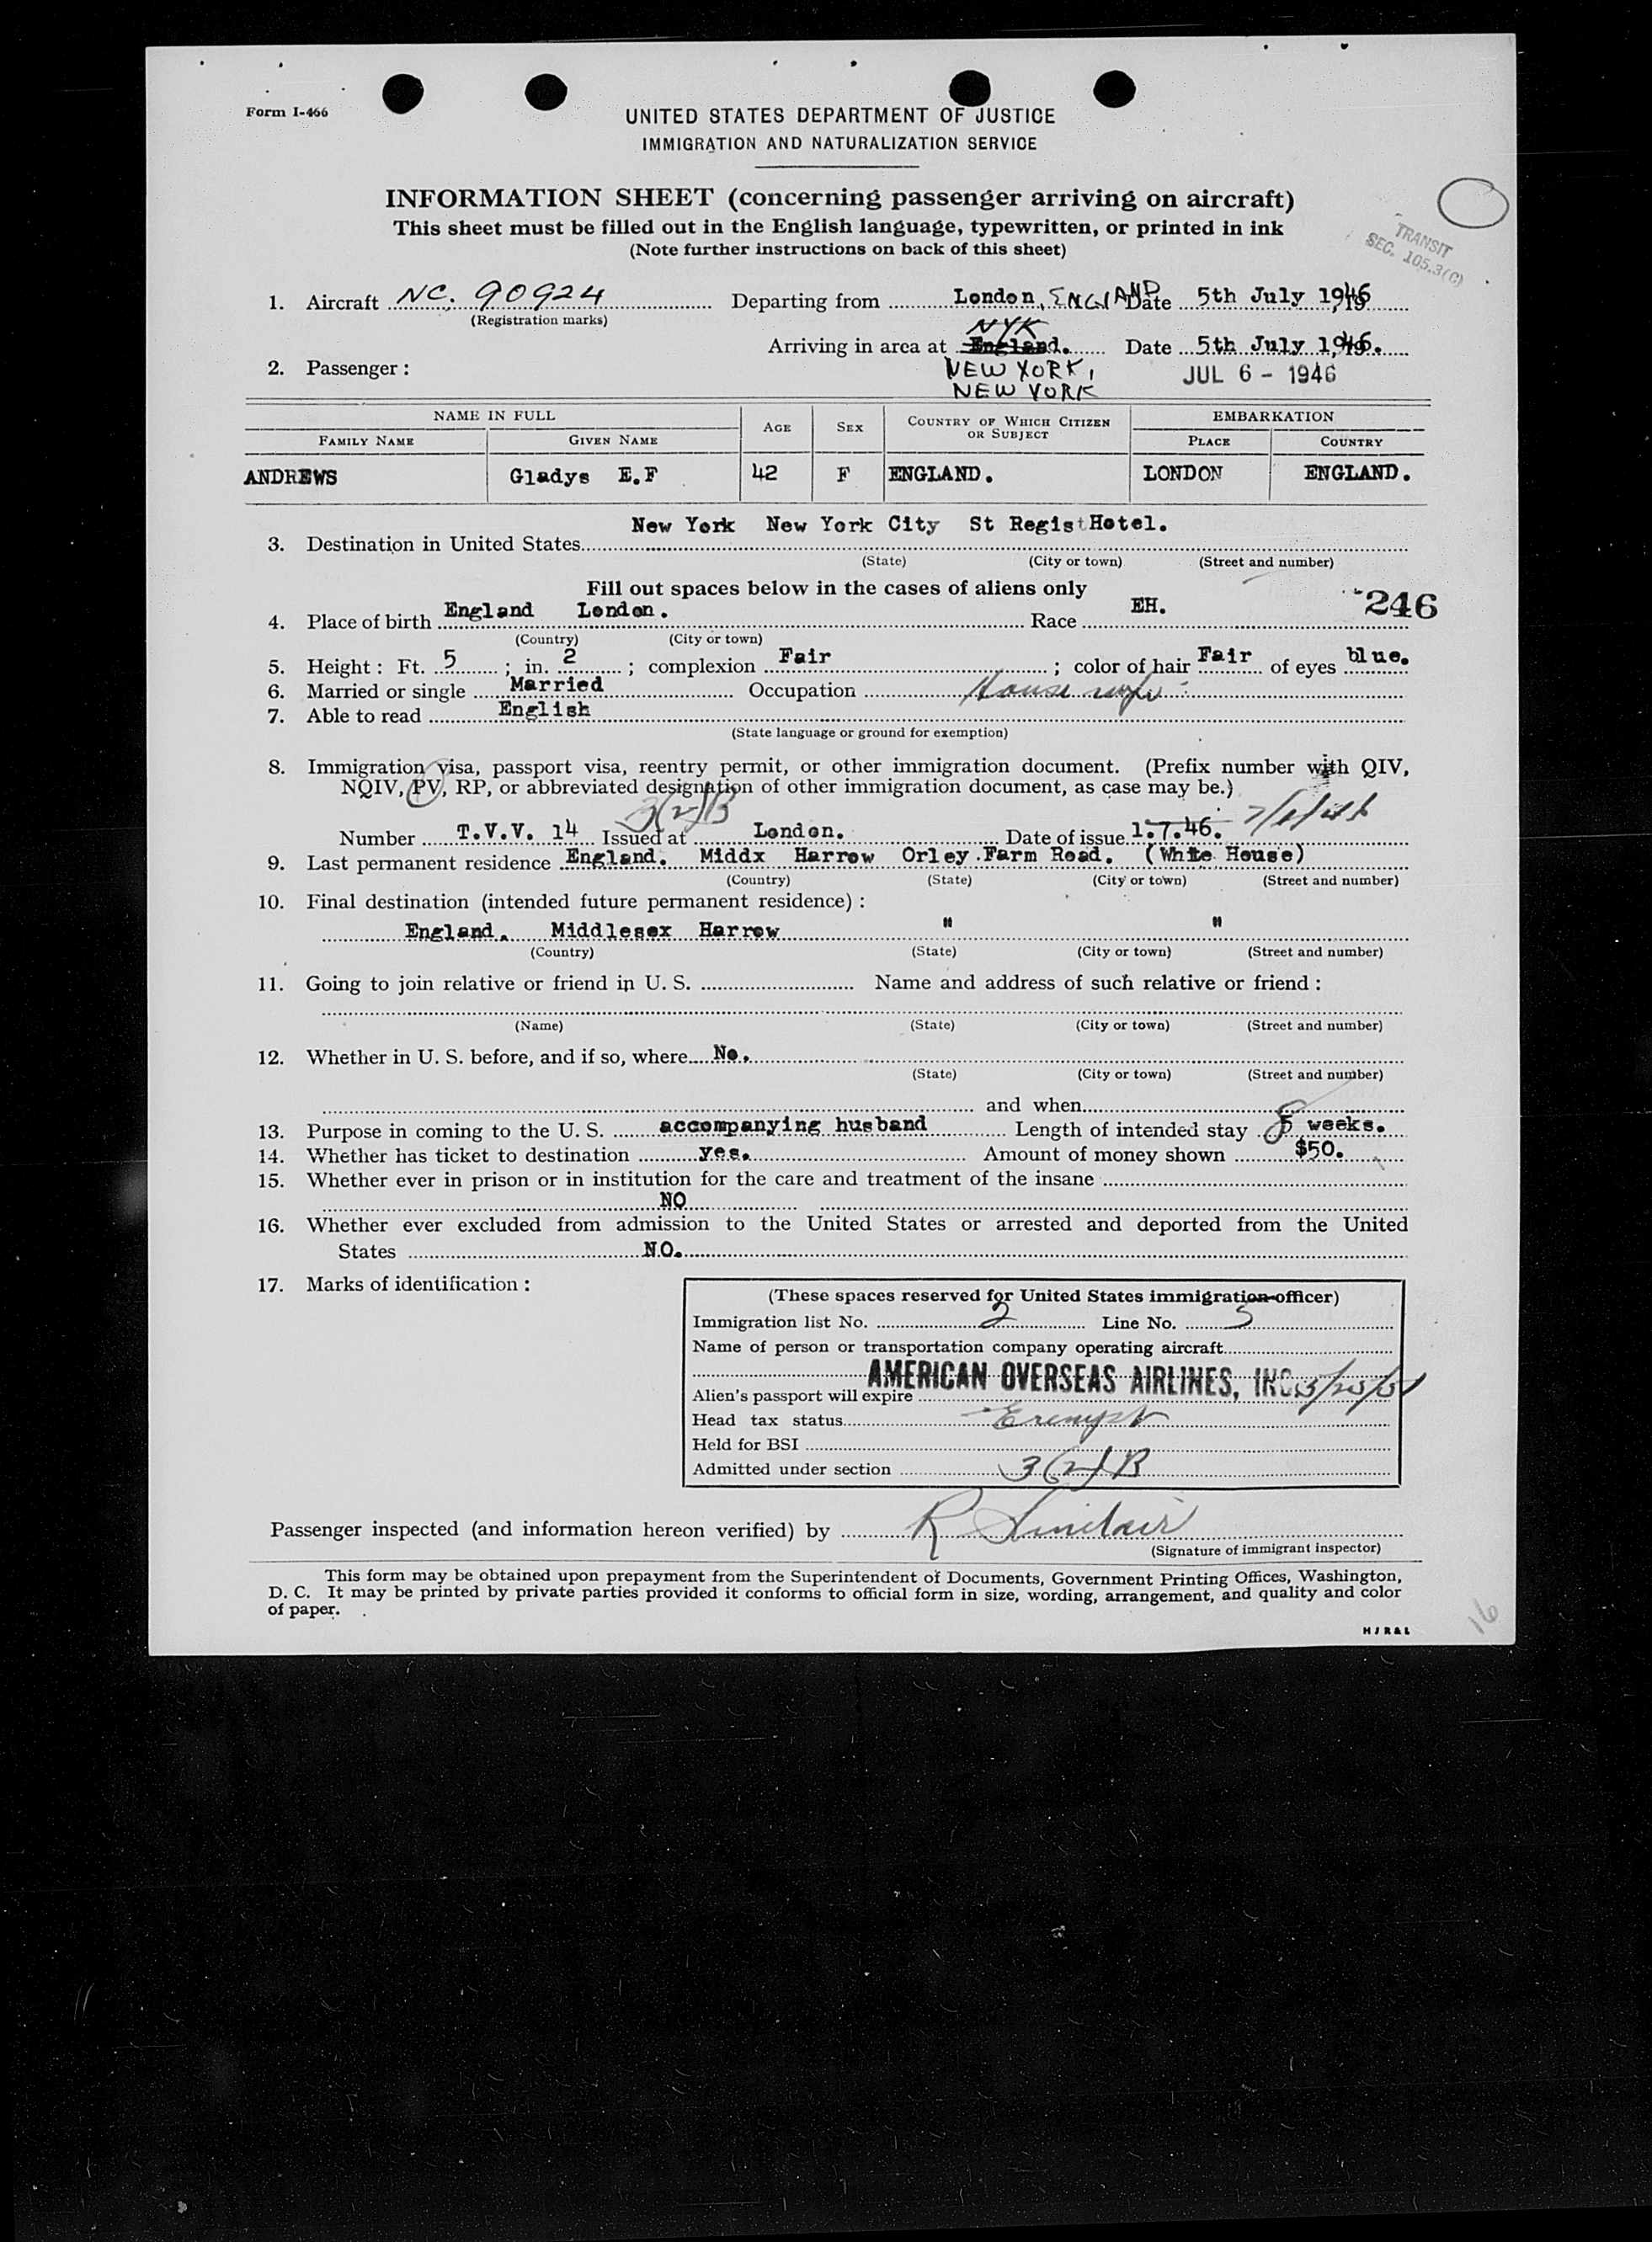 Form I-466
UNITED STATES DEPARTMENT OF JUSTICE
IMMIGRATION AND NATURALIZATION SERVICE
INFORMATION SHEET (concerning passenger arriving on aircraft)
This sheet must be filled out in the English language, typewritten, or printed in ink
(Note further instructions on back of this sheet)
TRANSIT
SEC. 105.3(C)
1. Aircraft NC. 90924 Departing from London, ENGLAND Date 5th July 1946
(Registration marks)
NYK
Arriving in area at England. Date 5th July 1946.
2. Passenger: NEW YORK, JUL 6 - 1946
NEW YORK
NAME IN FULL AGE SEX COUNTRY OF WHICH CITIZEN OR SUBJECT EMBARKATION
FAMILY NAME GIVEN NAME PLACE COUNTRY
ANDREWS Gladys E.F 42 F ENGLAND. LONDON ENGLAND.
New York New York City St Regist Hotel.
3. Destination in United States
(State) (City or town) (Street and number)
Fill out spaces below in the cases of aliens only
246
4. Place of birth England London. Race EH.
(Country) (City or town)
5. Height: Ft. 5; in. 2; complexion Fair; color of hair Fair of eyes blue.
6. Married or single Married Occupation House wife
7. Able to read English
(State language or ground for exemption)
8. Immigration visa, passport visa, reentry permit, or other immigration document. (Prefix number with QIV,
NQIV, PV, RP, or abbreviated designation of other immigration document, as case may be.)
3(2)B
Number T.V.V. 14 Issued at London. Date of issue 1.7.46.
9. Last permanent residence England. Middx Harrow Orley Farm Road. (White House)
(Country) (State) (City or town) (Street and number)
10. Final destination (intended future permanent residence):
England. Middlesex Harrow " "
(Country) (State) (City or town) (Street and number)
11. Going to join relative or friend in U. S. Name and address of such relative or friend:
(Name) (State) (City or town) (Street and number)
12. Whether in U. S. before, and if so, where No.
(State) (City or town) (Street and number)
and when
13. Purpose in coming to the U. S. accompanying husband Length of intended stay 8 weeks.
14. Whether has ticket to destination yes. Amount of money shown $50.
15. Whether ever in prison or in institution for the care and treatment of the insane
NO
16. Whether ever excluded from admission to the United States or arrested and deported from the United
States NO.
17. Marks of identification:
(These spaces reserved for United States immigration officer)
Immigration list No. 2 Line No. 5
Name of person or transportation company operating aircraft
AMERICAN OVERSEAS AIRLINES, INC.
Alien's passport will expire
Head tax status Exempt
Held for BSI
Admitted under section 3(2)B
Passenger inspected (and information hereon verified) by R Sinclair
(Signature of immigrant inspector)
This form may be obtained upon prepayment from the Superintendent of Documents, Government Printing Offices, Washington,
D. C. It may be printed by private parties provided it conforms to official form in size, wording, arrangement, and quality and color
of paper.
HJR&L
16